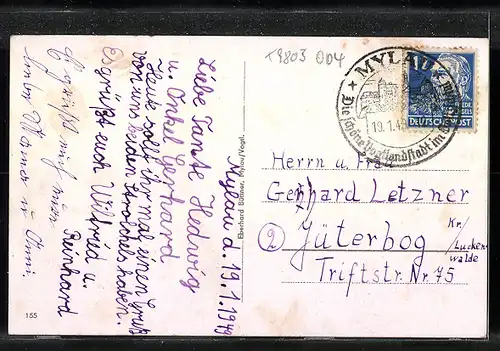 T9803 004
MYLAU
Die schöne Vogtlandstadt im
19.1.49
DEUTSCHE POST
Mylau d. 19.1.1949
Liebe Tante Hedwig
u. Onkel Gerhard
Heute sollt ihr mal einen Gruß
von uns beiden
haben.
Es grüßt euch Wilfried u.
Reinhard
Es grüßt auch
Werner u.
Eberhard Büttner, Mylau/Vogtl.
155
Herrn u. Frau
Gerhard Letzner
2 Jüterbog
Kr/
Lucken
walde
Triftstr. Nr. 75